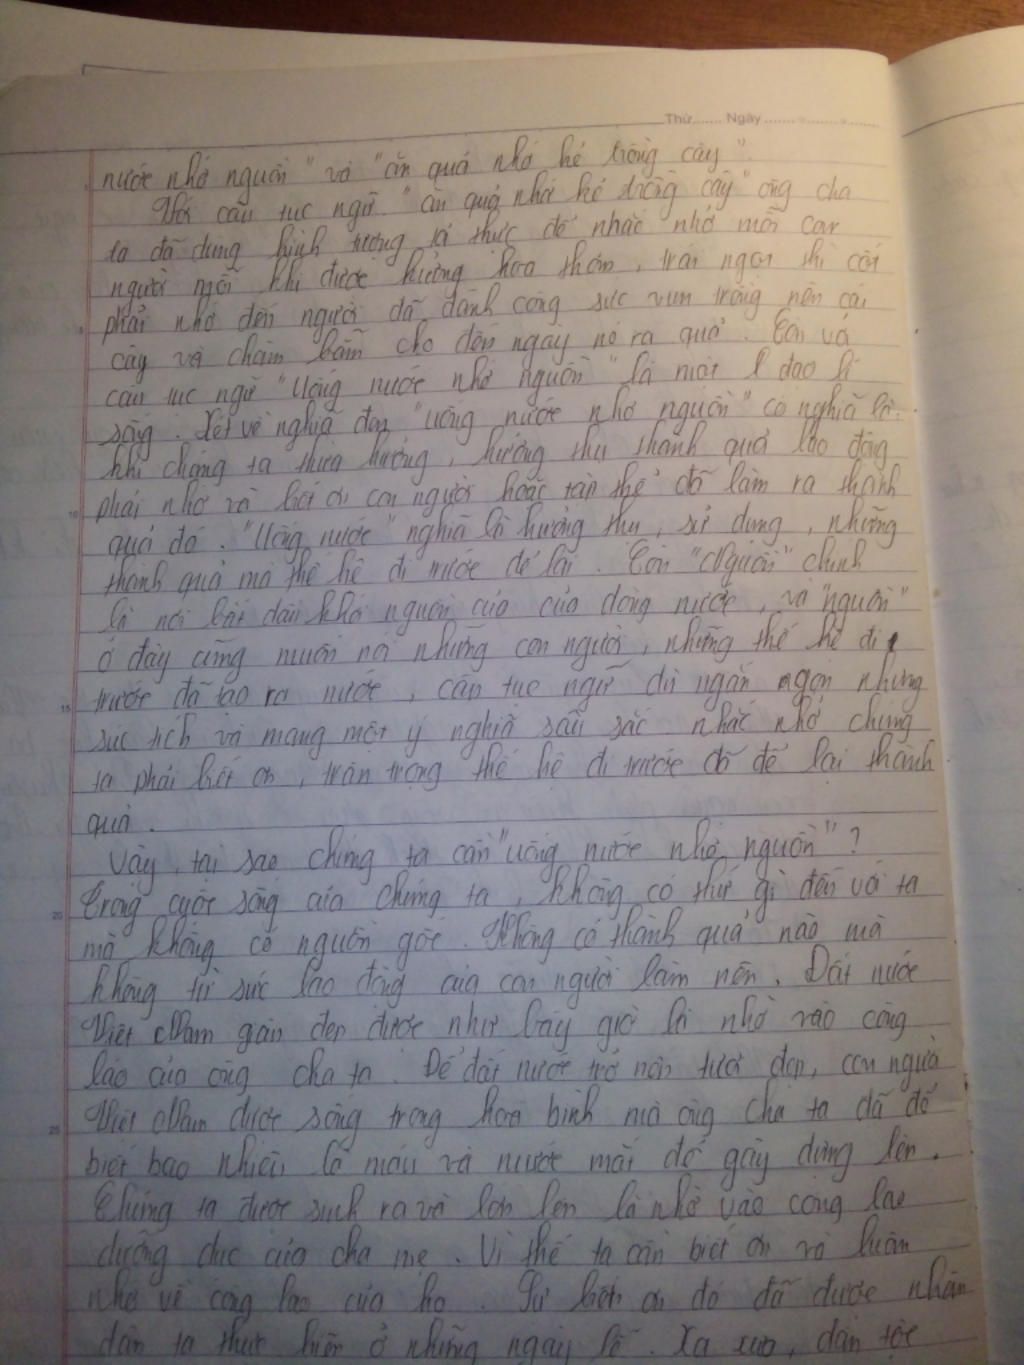 Thứ....... Ngày ....................
nước nhớ nguồn" và "ăn quả nhớ kẻ trồng cây".
Với câu tục ngữ "ăn quả nhớ kẻ trồng cây" ông cha
ta đã dùng hình tượng tả thực để nhắc nhở mỗi con
người mỗi khi được hưởng hoa thơm, trái ngọt thì cần
phải nhớ đến người đã dành công sức vun trồng nên cái
cây và chăm bẵm cho đến ngày nó ra quả. Còn về
câu tục ngữ "Uống nước nhớ nguồn" là một đạo lí
sống. Xét về nghĩa đen "uống nước nhớ nguồn" có nghĩa là:
khi chúng ta thừa hưởng, hưởng thụ thành quả lao động
phải nhớ và biết ơn con người hoặc tập thể đã làm ra thành
quả đó. "Uống nước" nghĩa là hưởng thụ, sử dụng, những
thành quả mà thế hệ đi trước để lại. Còn "Nguồn" chính
là nơi bắt đầu khởi nguồn của của dòng nước, và "nguồn"
ở đây cũng muốn nói những con người, những thế hệ đi
trước đã tạo ra nước, câu tục ngữ dù ngắn ngọn nhưng
súc tích và mang một ý nghĩa sâu sắc nhắc nhở chúng
ta phải biết ơn, trân trọng thế hệ đi trước đã để lại thành
quả.
Vậy, tại sao chúng ta cần "uống nước nhớ nguồn"?
Trong cuộc sống của chúng ta, không có thứ gì đến với ta
mà không có nguồn gốc. Không có thành quả nào mà
không từ sức lao động của con người làm nên. Đất nước
Việt Nam giàu đẹp được như bây giờ là nhờ vào công
lao của ông cha ta. Để đất nước trở nên tươi đẹp, con người
Việt Nam được sống trong hoà bình mà ông cha ta đã đổ
biết bao nhiêu là máu và nước mắt để gây dựng lên.
Chúng ta được sinh ra và lớn lên là nhờ vào công lao
dưỡng dục của cha mẹ. Vì thế ta cần biết ơn và luôn
nhớ về công lao của họ. Sự biết ơn đó đã được nhân
dân ta thực hiện ở những ngày lễ. Xa xưa, dân tộc